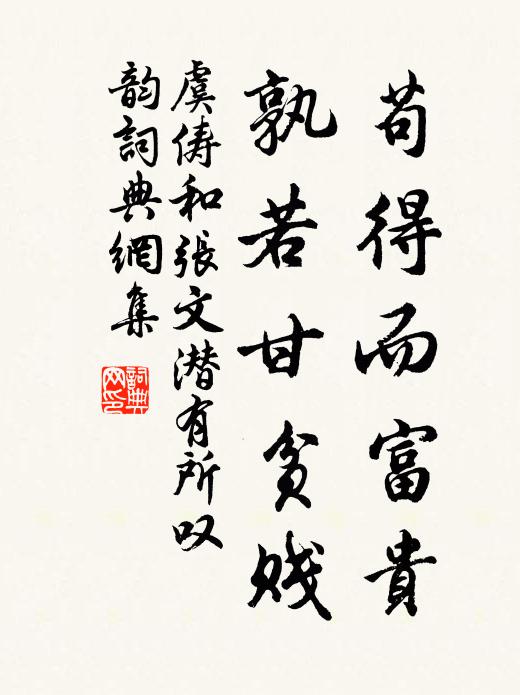 苟得而富貴
孰若甘貧賤
虞俦和張文潜有所叹
韵詞典網集
詞典网印